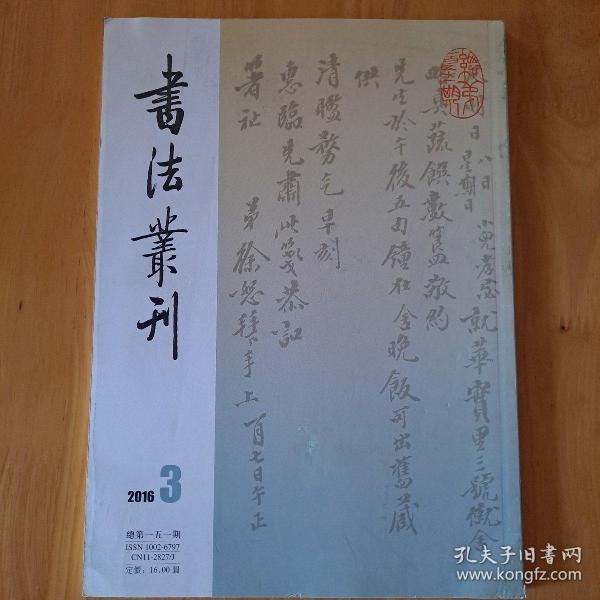 書法叢刊
2016 3
總第一五一期
ISSN 1002-6797
CN11-2827/J
定價：16.00圓
日 八日 星期日 小兒孝 就華寶里三號
蔬饌數 敬約
先生於午後五句鐘在舍晚飯可出舊藏
供
清鑒務乞早刻
惠臨先肅此箋恭訂
箸祉 弟徐恕 手上 月七日午正
孔夫子旧书网
www.kongfz.com